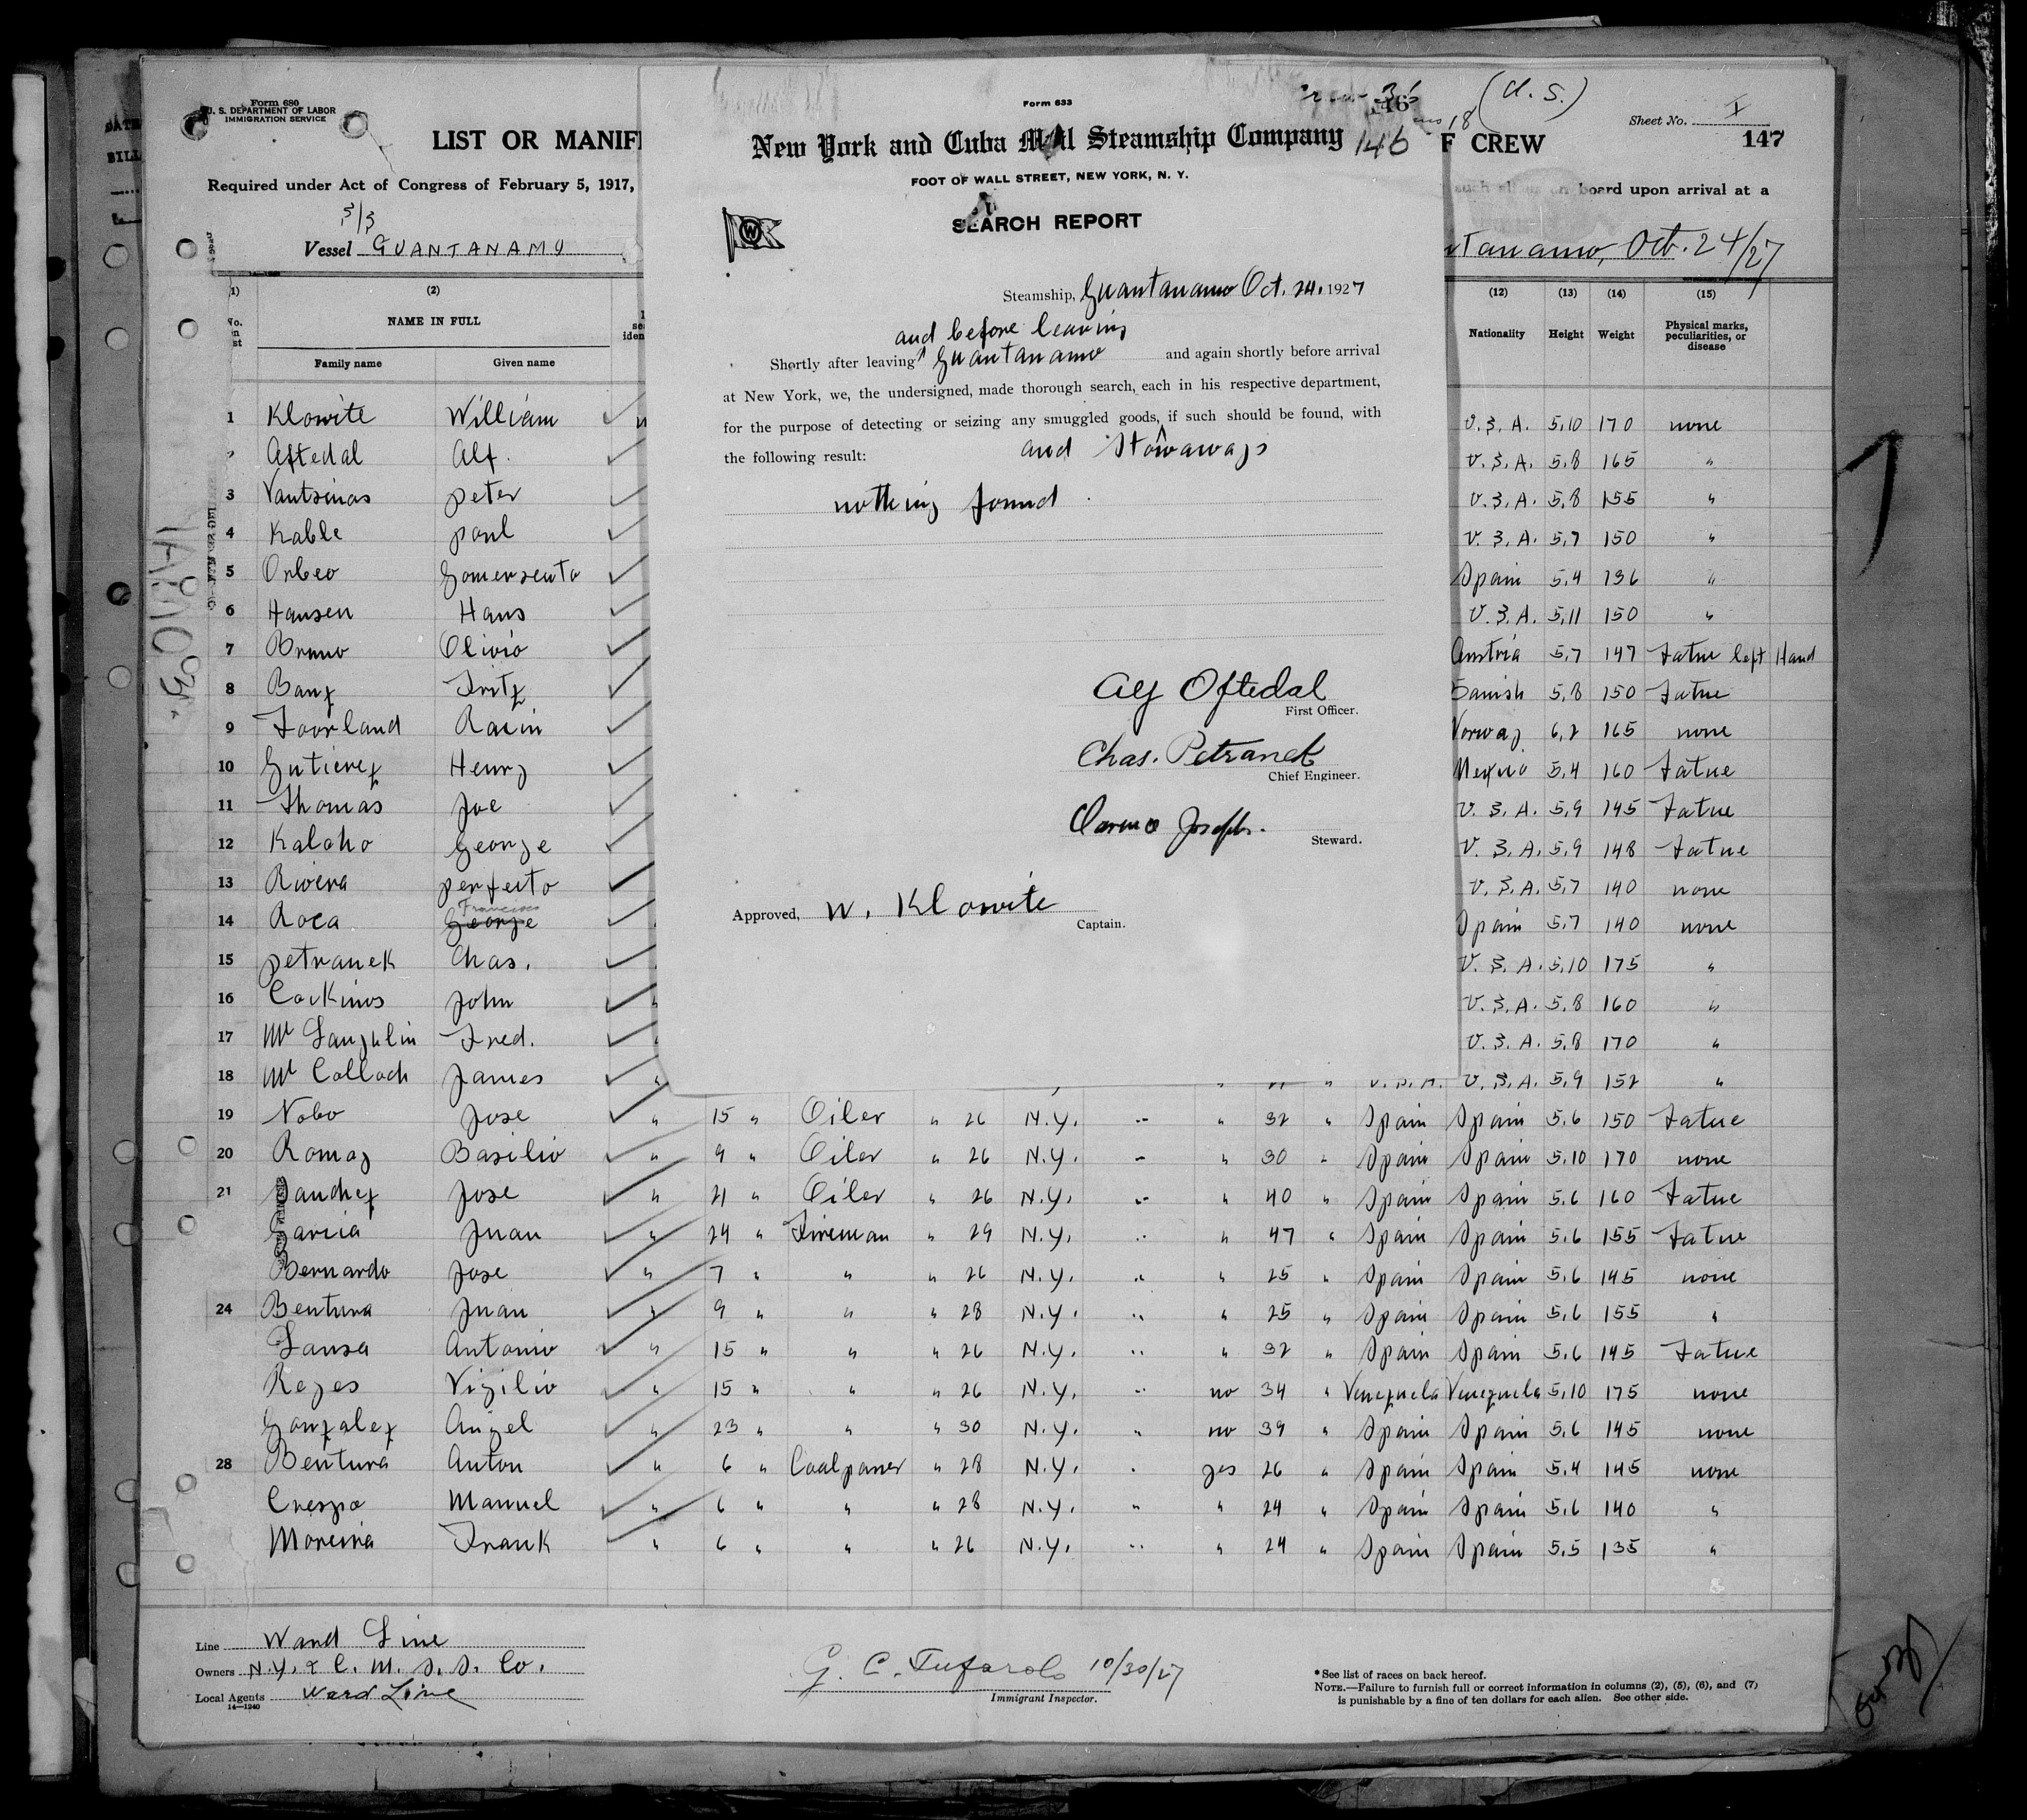 Form 680
U. S. DEPARTMENT OF LABOR
IMMIGRATION SERVICE
LIST OR MANIF
F CREW
Sheet No. I
147
Required under Act of Congress of February 5, 1917,
board upon arrival at a
5/3
Vessel GUANTANAMO
Oct. 24/27
Form 633
(U. S.)
New York and Cuba Mail Steamship Company 146
FOOT OF WALL STREET, NEW YORK, N. Y.
SEARCH REPORT
W
Steamship, Guantanamo Oct. 24, 1927
and before leaving
Shortly after leaving Guantanamo and again shortly before arrival
at New York, we, the undersigned, made thorough search, each in his respective department,
for the purpose of detecting or seizing any smuggled goods, if such should be found, with
the following result: and stowaways
nothing found
Alf Oftedal
First Officer.
Chas. Petranek
Chief Engineer.
Joseph.
Steward.
Approved, W. Klowite
Captain.
(2) (12) (13) (14) (15)
NAME IN FULL Nationality Height Weight Physical marks, peculiarities, or disease
Family name Given name
1 Klowite William U.S.A. 5,10 170 none
Aftedal Alf. U.S.A. 5,8 165 "
3 Vantsinas peter U.S.A. 5,8 155 "
4 Kable paul U.S.A. 5,7 150 "
5 Orbeo Gomersento Spain 5,4 136 "
6 Hansen Hans U.S.A. 5,11 150 "
7 Bruno Olivio Austria 5,7 147 Tatue left Hand
8 Banz Fritz Danish 5,8 150 Tatue
9 Foorland Norway 6,2 165 none
10 Gutierez Henry Mexico 5,4 160 Tatue
11 Thomas Joe U.S.A. 5,9 145 Tatue
12 Kaloho George U.S.A. 5,9 148 Tatue
13 Rivera perfecto U.S.A. 5,7 140 none
14 Roca George Francisco Spain 5,7 140 none
15 petranek Chas. U.S.A. 5,10 175 "
16 Cockinos John U.S.A. 5,8 160 "
17 Mc Laughlin Fred. U.S.A. 5,8 170 "
18 Mc Colloch James " U.S.A. U.S.A. 5,9 152 "
19 Nobo Jose " 15 " Oiler " 26 N.Y. " " 32 " Spain Spain 5,6 150 Tatue
20 Romay Basilio " 9 " Oiler " 26 N.Y. " " 30 " Spain Spain 5,10 170 none
21 Sanchez Jose " 21 " Oiler " 26 N.Y. " " 40 " Spain Spain 5,6 160 Tatue
Garcia Juan " 24 " Fireman " 29 N.Y. " " 47 " Spain Spain 5,6 155 Tatue
Bernardo Jose " 7 " " " 26 N.Y. " " 25 " Spain Spain 5,6 145 none
24 Bentura Juan " 9 " " " 28 N.Y. " " 25 " Spain Spain 5,6 155 "
Lansa Antonio " 15 " " " 26 N.Y. " " 32 " Spain Spain 5,6 145 Tatue
Reyes Vigilio " 15 " " " 26 N.Y. " no 34 " Venezuela Venezuela 5,10 175 none
Gonzalez Angel " 23 " " " 30 N.Y. " no 39 " Spain Spain 5,6 145 none
28 Bentura Anton " 6 " Coalpaser " 28 N.Y. " yes 26 " Spain Spain 5,4 145 none
Crespo Manuel " 6 " " " 28 N.Y. " " 24 " Spain Spain 5,6 140 "
Moreira Frank " 6 " " " 26 N.Y. " " 24 " Spain Spain 5,5 135 "
Line Ward Line
Owners N.Y. & C. M. S. S. Co.
Local Agents Ward Line
14—1240
G. C. Tufarolo 10/30/27
Immigrant Inspector.
*See list of races on back hereof.
NOTE.—Failure to furnish full or correct information in columns (2), (5), (6), and (7)
is punishable by a fine of ten dollars for each alien. See other side.